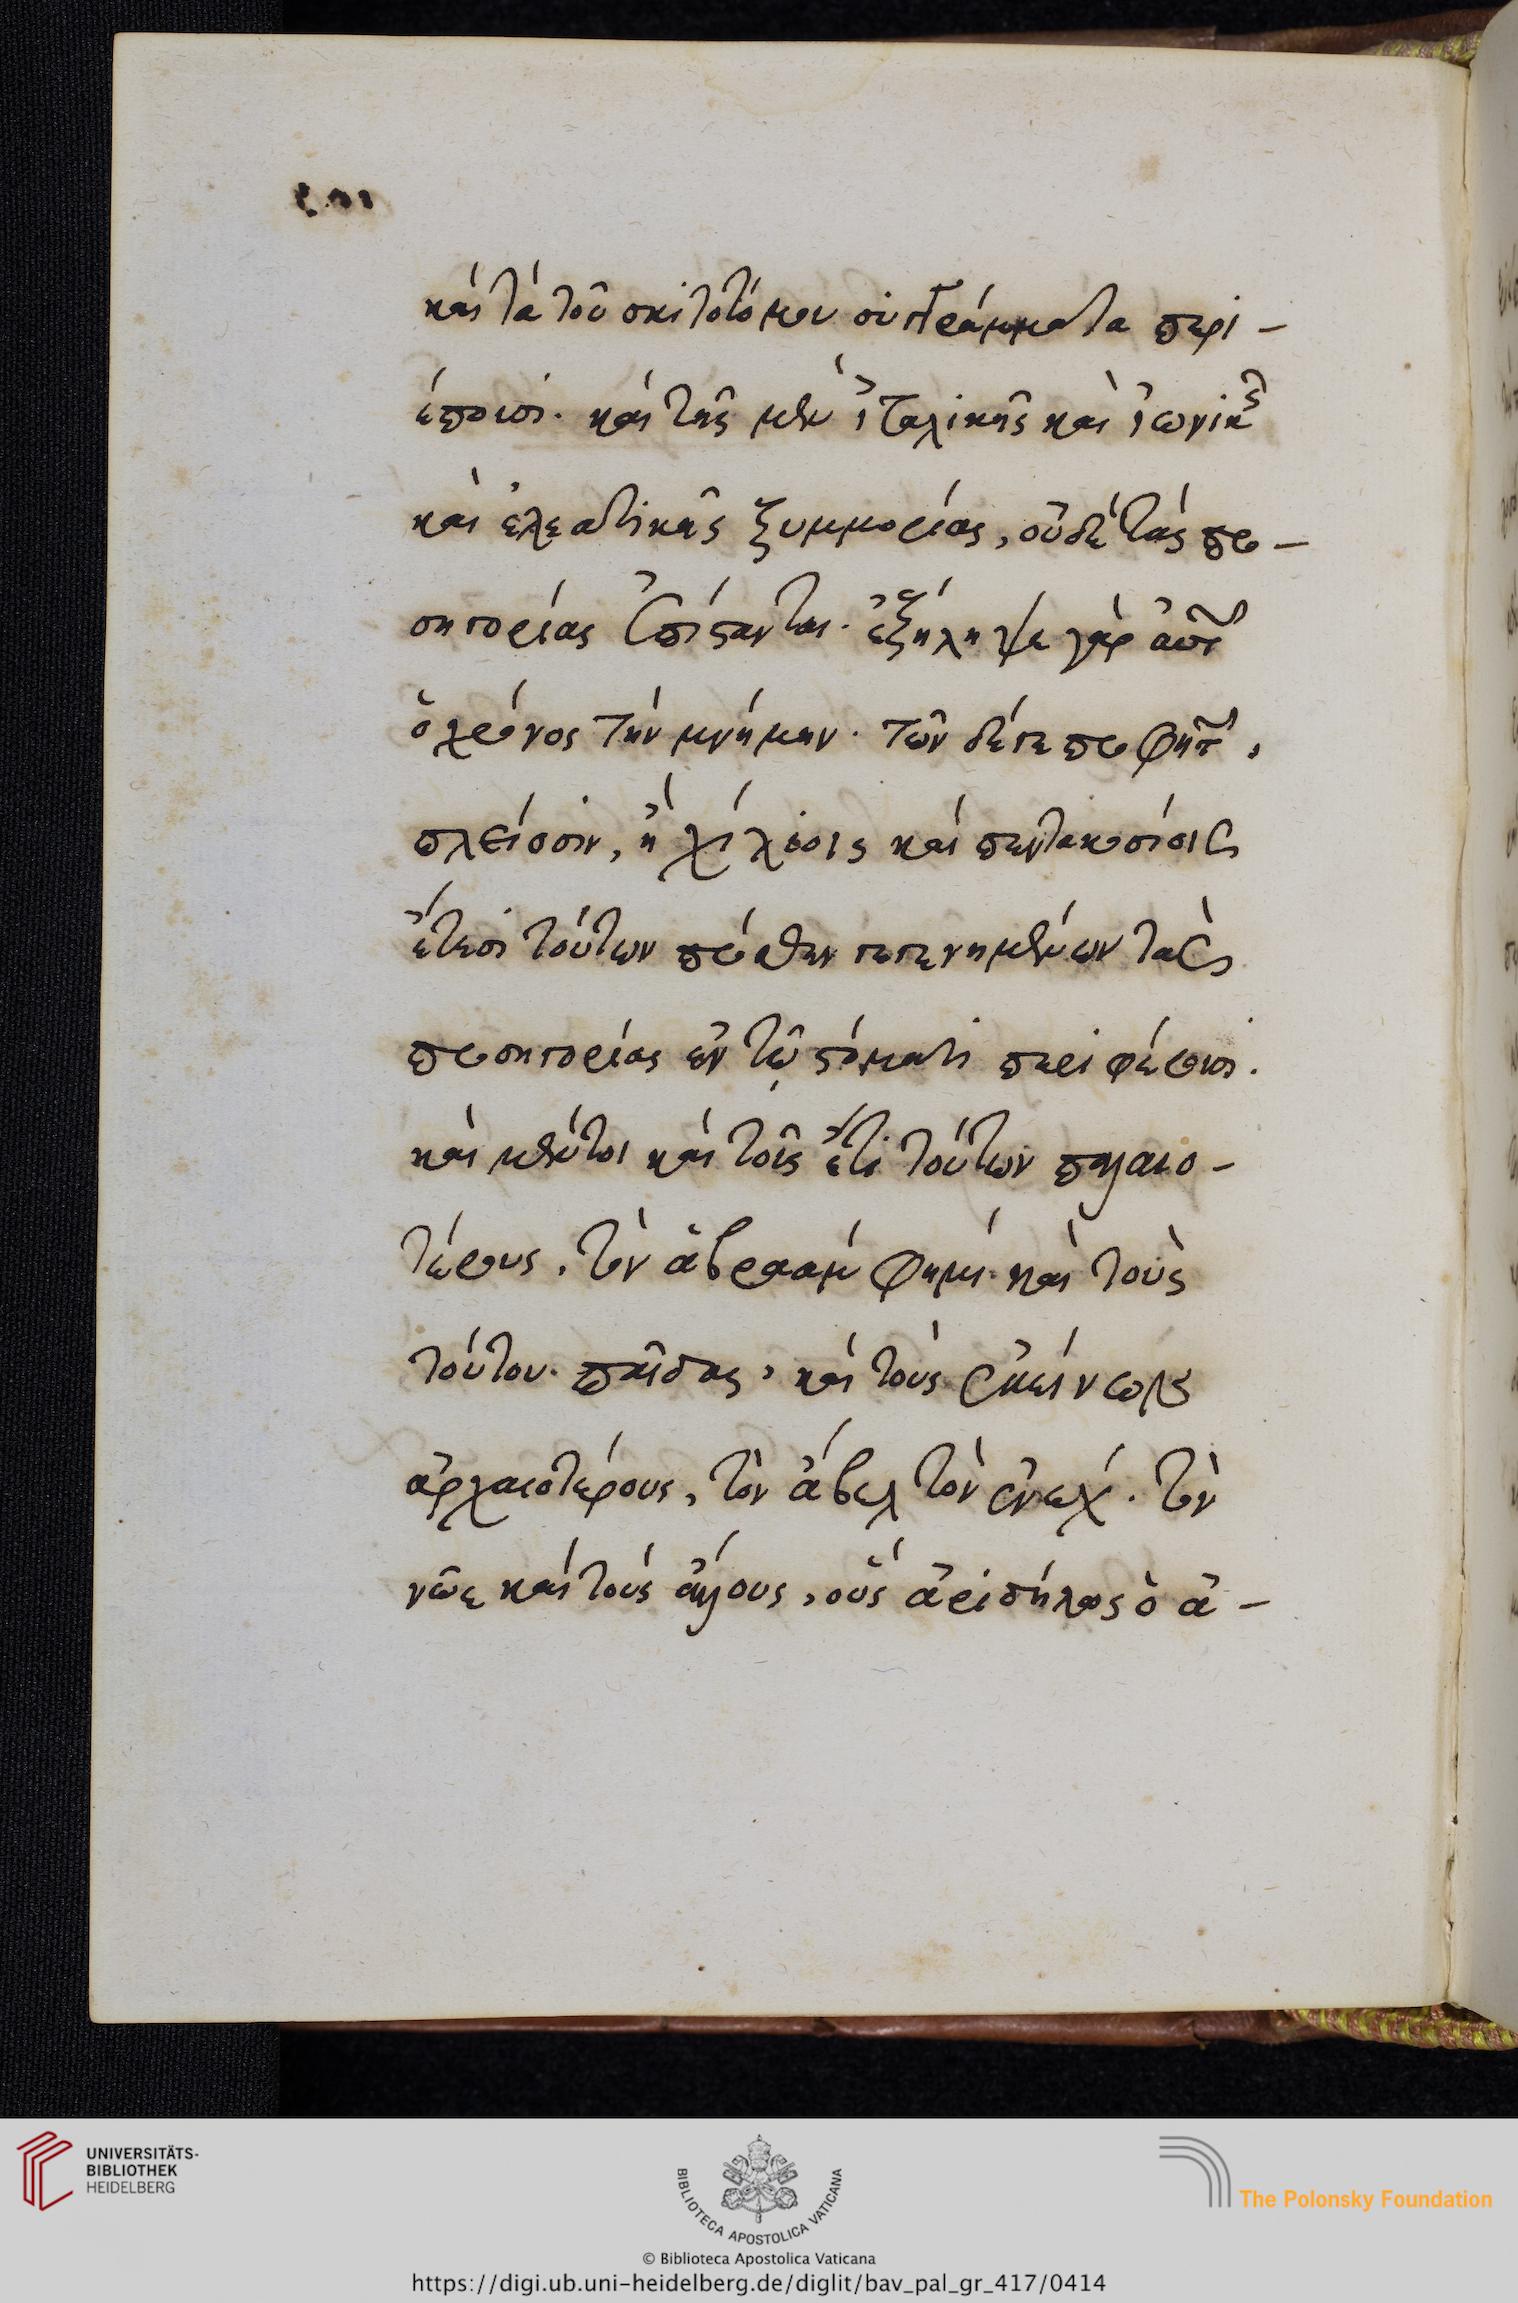 καὶ τὰ τοῦ σκιτοτόμου συγγράμματα περι-
έπουσι. καὶ τῆς μὲν ἰταλικῆς καὶ ἰωνικῆς
καὶ ἐλεατικῆς ξυμμορίας, οὐδὲ τὰς προ-
σηγορίας ἐπίστανται. ἐξήληψε γὰρ αὐτῶν
ὁ χρόνος τὴν μνήμην. τῶν δέ γε προφητῶν,
πλείοσιν, ἢ χιλίοις καὶ πεντακοσίοις
ἔτεσι τούτων πρόσθεν γεγενημένων τὰς
προσηγορίας ἐν τῷ στόματι περιφέρουσι.
καὶ μέντοι καὶ τοὺς ἔτι τούτων παλαιο-
τέρους, τὸν ἀβραάμ φημι καὶ τοὺς
τούτου παῖδας, καὶ τοὺς ἐκείνων
ἀρχαιοτέρους, τὸν ἄβελ τὸν ἐνώχ. τὸν
νῶε καὶ τοὺς ἄλλους, οὓς ἀριδήλως ὁ ἀ-
UNIVERSITÄTS-
BIBLIOTHEK
HEIDELBERG
BIBLIOTECA APOSTOLICA VATICANA
The Polonsky Foundation
© Biblioteca Apostolica Vaticana
https://digi.ub.uni-heidelberg.de/diglit/bav_pal_gr_417/0414